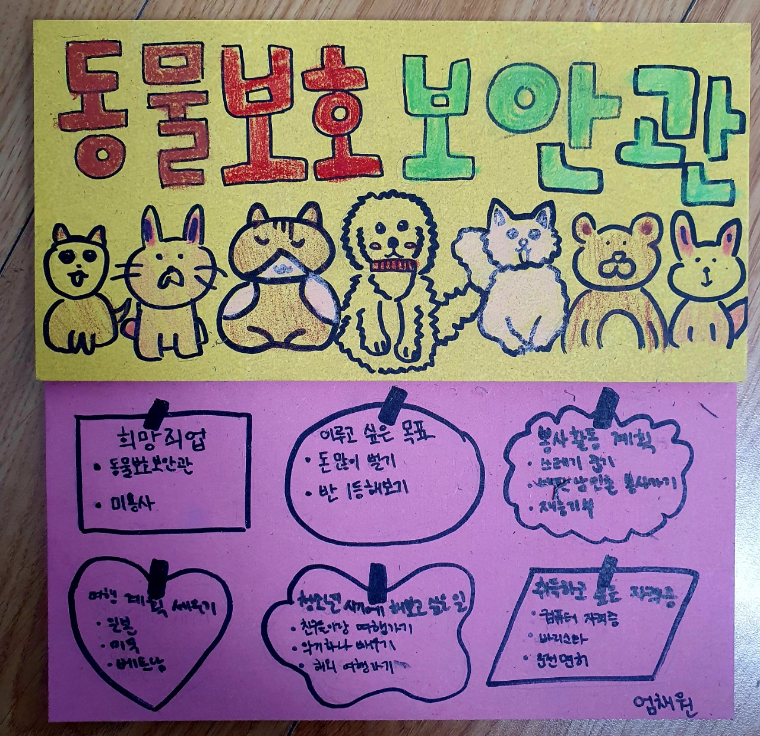 동물보호 보안관
희망직업
• 동물보호보안관
• 미용사
이루고 싶은 목표
• 돈 많이 벌기
• 반 1등해보기
봉사활동 계획
• 쓰레기 줍기
봉사가기
• 재능기부
여행 계획 세우기
• 일본
• 미국
• 베트남
청소년 시기에 해보고 싶은 일
• 친구들이랑 여행가기
• 악기하나 배우기
• 해외 여행가기
취득하고 싶은 자격증
• 컴퓨터 자격증
• 바리스타
• 운전면허
엄채원